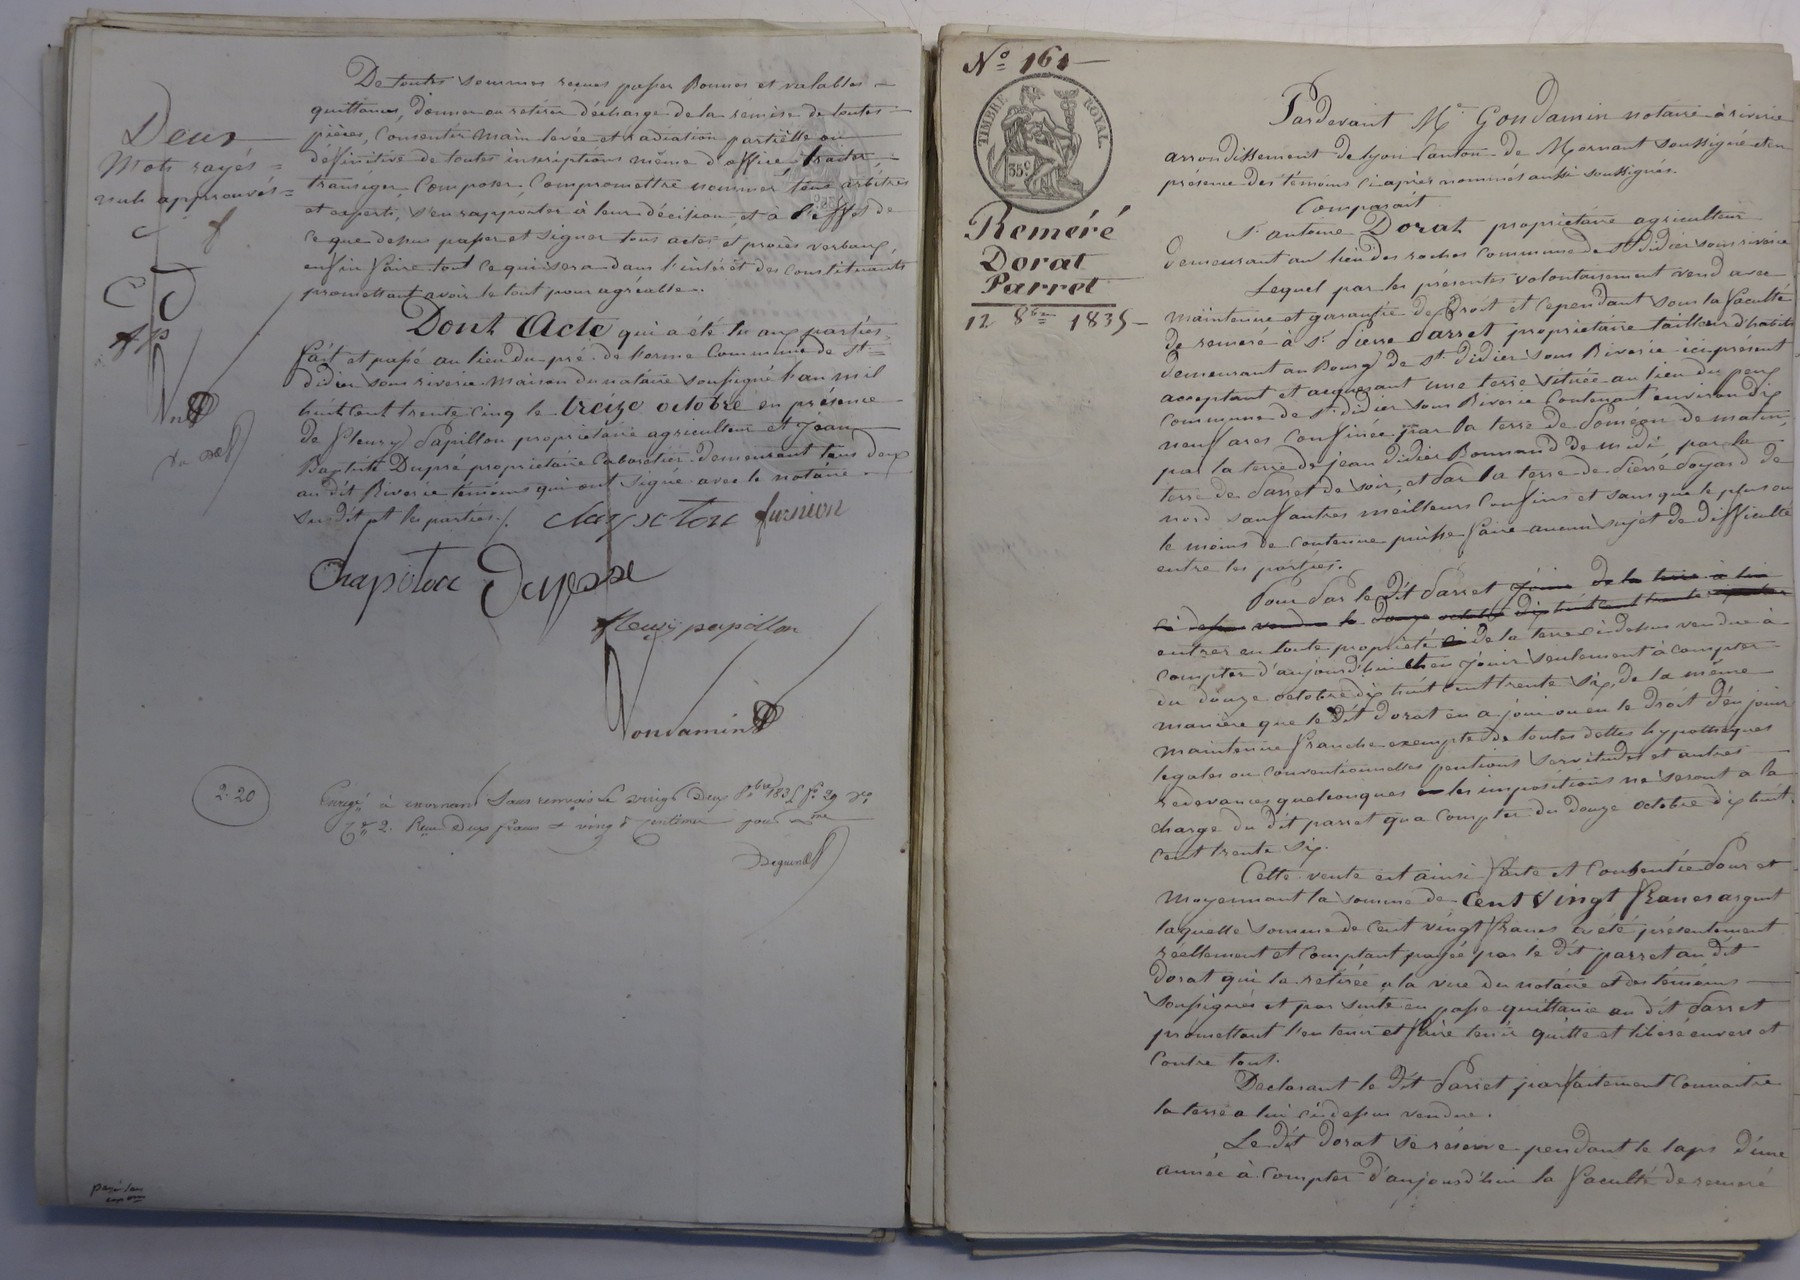 De toutes sommes reçues passer Bonnes et valables
quittances, donner ou retirer décharge de la remise de toutes
pièces, Consentir main levée et radiation partielle ou
déffinitive de toutes inscriptions même d'office, traiter,
transiger, Composer, Compromettre nommer tous arbitres
et experts, s'en rapporter à leur décision et à l'effet de
ce que dessus passer et signer tous actes et procès verbaux,
enfin faire tout ce qui sera dans l'intérêt des constituants
promettant avoir le tout pour agréable.
Dont Acte qui a été lu aux parties
fait et passé au lieu du pré de horme Commune de St.
didier sous riverie maison du notaire soussigné l'an mil
huit cent trente cinq le treize octobre en présence
de fleury Papillon propriétaire agriculteur et jean
Baptiste Dupré propriétaire Cabaretier demeurant tous deux
au dit Riverie témoins qui ont signé avec le notaire
susdit et les parties./.
chapeton furnion
Chapiton
fleury papillon
Gondamin
Deux
Mots rayés
nuls approuvés
2-20
Enregé à mornant sans renvois le vingt deux 8bre 1835 fo 29 vo
Ce 2. Reçu deux francs & vingt centimes pour
No 161
TIMBRE ROYAL
35c
Reméré
Dorat
Parret
12 8bre 1835
Pardevant Me Gondamin notaire à riverie
arrondissement de lyon Canton de Mornant soussigné et en
présence des témoins ci après nommés aussi soussignés.
Comparait
Sr antoine Dorat propriétaire agriculteur
demeurant au lieu des roches Commune de St didier sous riverie
Lequel par les présentes volontairement vend avec
maintenue et garantie de Droit et cependant sous la faculté
de reméré à Sr pierre Parret propriétaire tailleur d'habits
demeurant au Bourg de St didier sous Riverie ici présent
acceptant et acquerant une terre située au lieu du
Commune de St didier sous Riverie Contenant environ dix
neuf ares Confinée par la terre de de matin,
par la terre de jean didier Bonnand de midi par la
terre de Parret de soir, et par la terre de Pierre de
nord sauf autres meilleurs Confins et sans que le plus ou
le moins de Contenue puisse faire aucun sujet de difficulté
entre les parties.
Pour par le dit Parret jouir de la terre à lui
ci dessus vendue le douze octobre dix huit cent trente
entrer en toute propriété de la terre ci dessus vendue à
compter d'aujourd'hui et en jouir seulement à compter
du douze octobre dix huit cent trente six, de la même
manière que le dit Dorat en a joui ou eu le Droit d'en jouir
maintenue franche exempte de toutes dettes hypothèques
légales ou conventionnelles pentions servitudes et autres
redevances quelconques les impositions ne seront a la
charge du dit parret qu'a compter du douze octobre dix huit
Cent trente six.
Cette vente est ainsi faite et Consentie Pour et
moyennant la somme de Cent vingt francs argent
laquelle somme de Cent vingt francs a été présentement
réellement et Comptant payée par le dit parret au dit
Dorat qui la retirée a la vue du notaire et des témoins
soussignés et par suite en passe quittance au dit Parret
promettant l'en tenir et faire tenir quitte et libéré envers et
Contre tout.
Declarant le dit Parret parfaitement Connaitre
la terre a lui ci dessus vendue.
Le dit Dorat se réserve pendant le laps d'une
année à Compter d'aujourd'hui la faculté de reméré